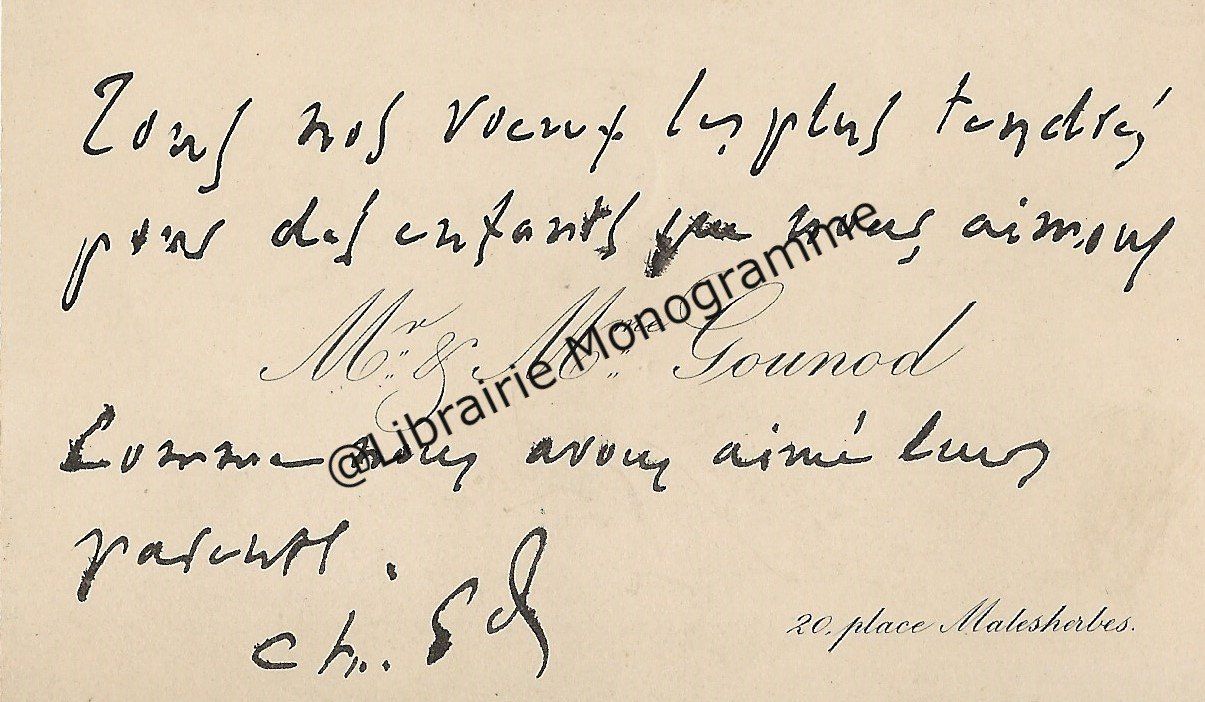 Tous nos voeux les plus tendres
pour des enfants que nous aimons
Mr. & Mme. Gounod
@Librairie Monogramme
Comme nous avons aimé leurs
parents.
Ch. Gd
20, place Malesherbes.